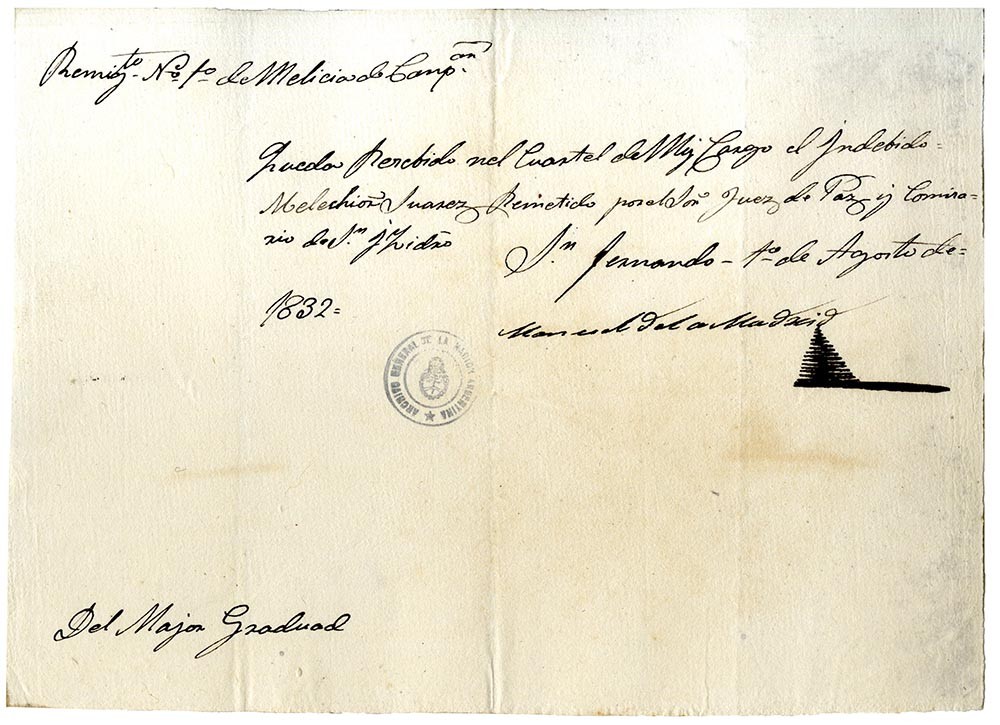 Remig.to N.o 1.o de Melicia de Canp.an
Queda Recebido nel Cuartel de Mi Cargo el Indebido=
Melechior Suarez Remetido por el Sor Juez de Paz y Comisa=
rio de S.n Ysidro
S.n Fernando - 1.o de Agosto de=
1832=
Manuel de la Madrid
ARCHIVO GENERAL DE LA NACION ARGENTINA
Del Major Graduad